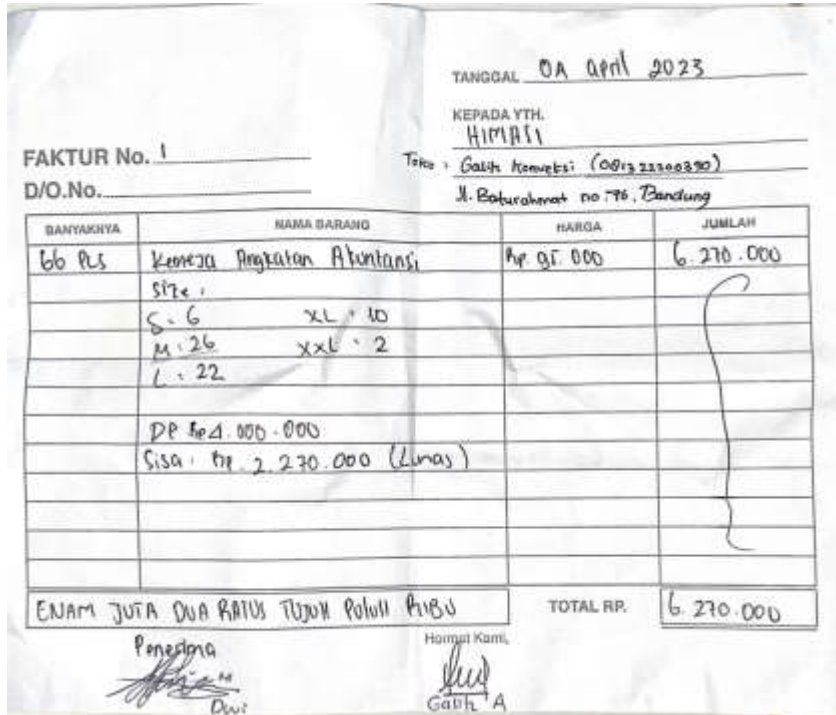 TANGGAL 04 april 2023
KEPADA YTH.
HIMASI
FAKTUR No. 1
Toko : Galih Konveksi (081322300390)
D/O.No.
Jl. Baturahmat no : 76, Bandung
BANYAKNYA NAMA BARANG HARGA JUMLAH
66 Pcs Kemeja Angkatan Akuntansi Rp. 95.000 6.270.000
Size :
S : 6 XL : 10
M : 26 XXL : 2
L : 22
DP Rp 4.000.000
Sisa : Rp. 2.270.000 (Lunas)
ENAM JUTA DUA RATUS TUJUH PULUH RIBU TOTAL RP. 6.270.000
Penerima Hormat Kami,
Dwi Galih A